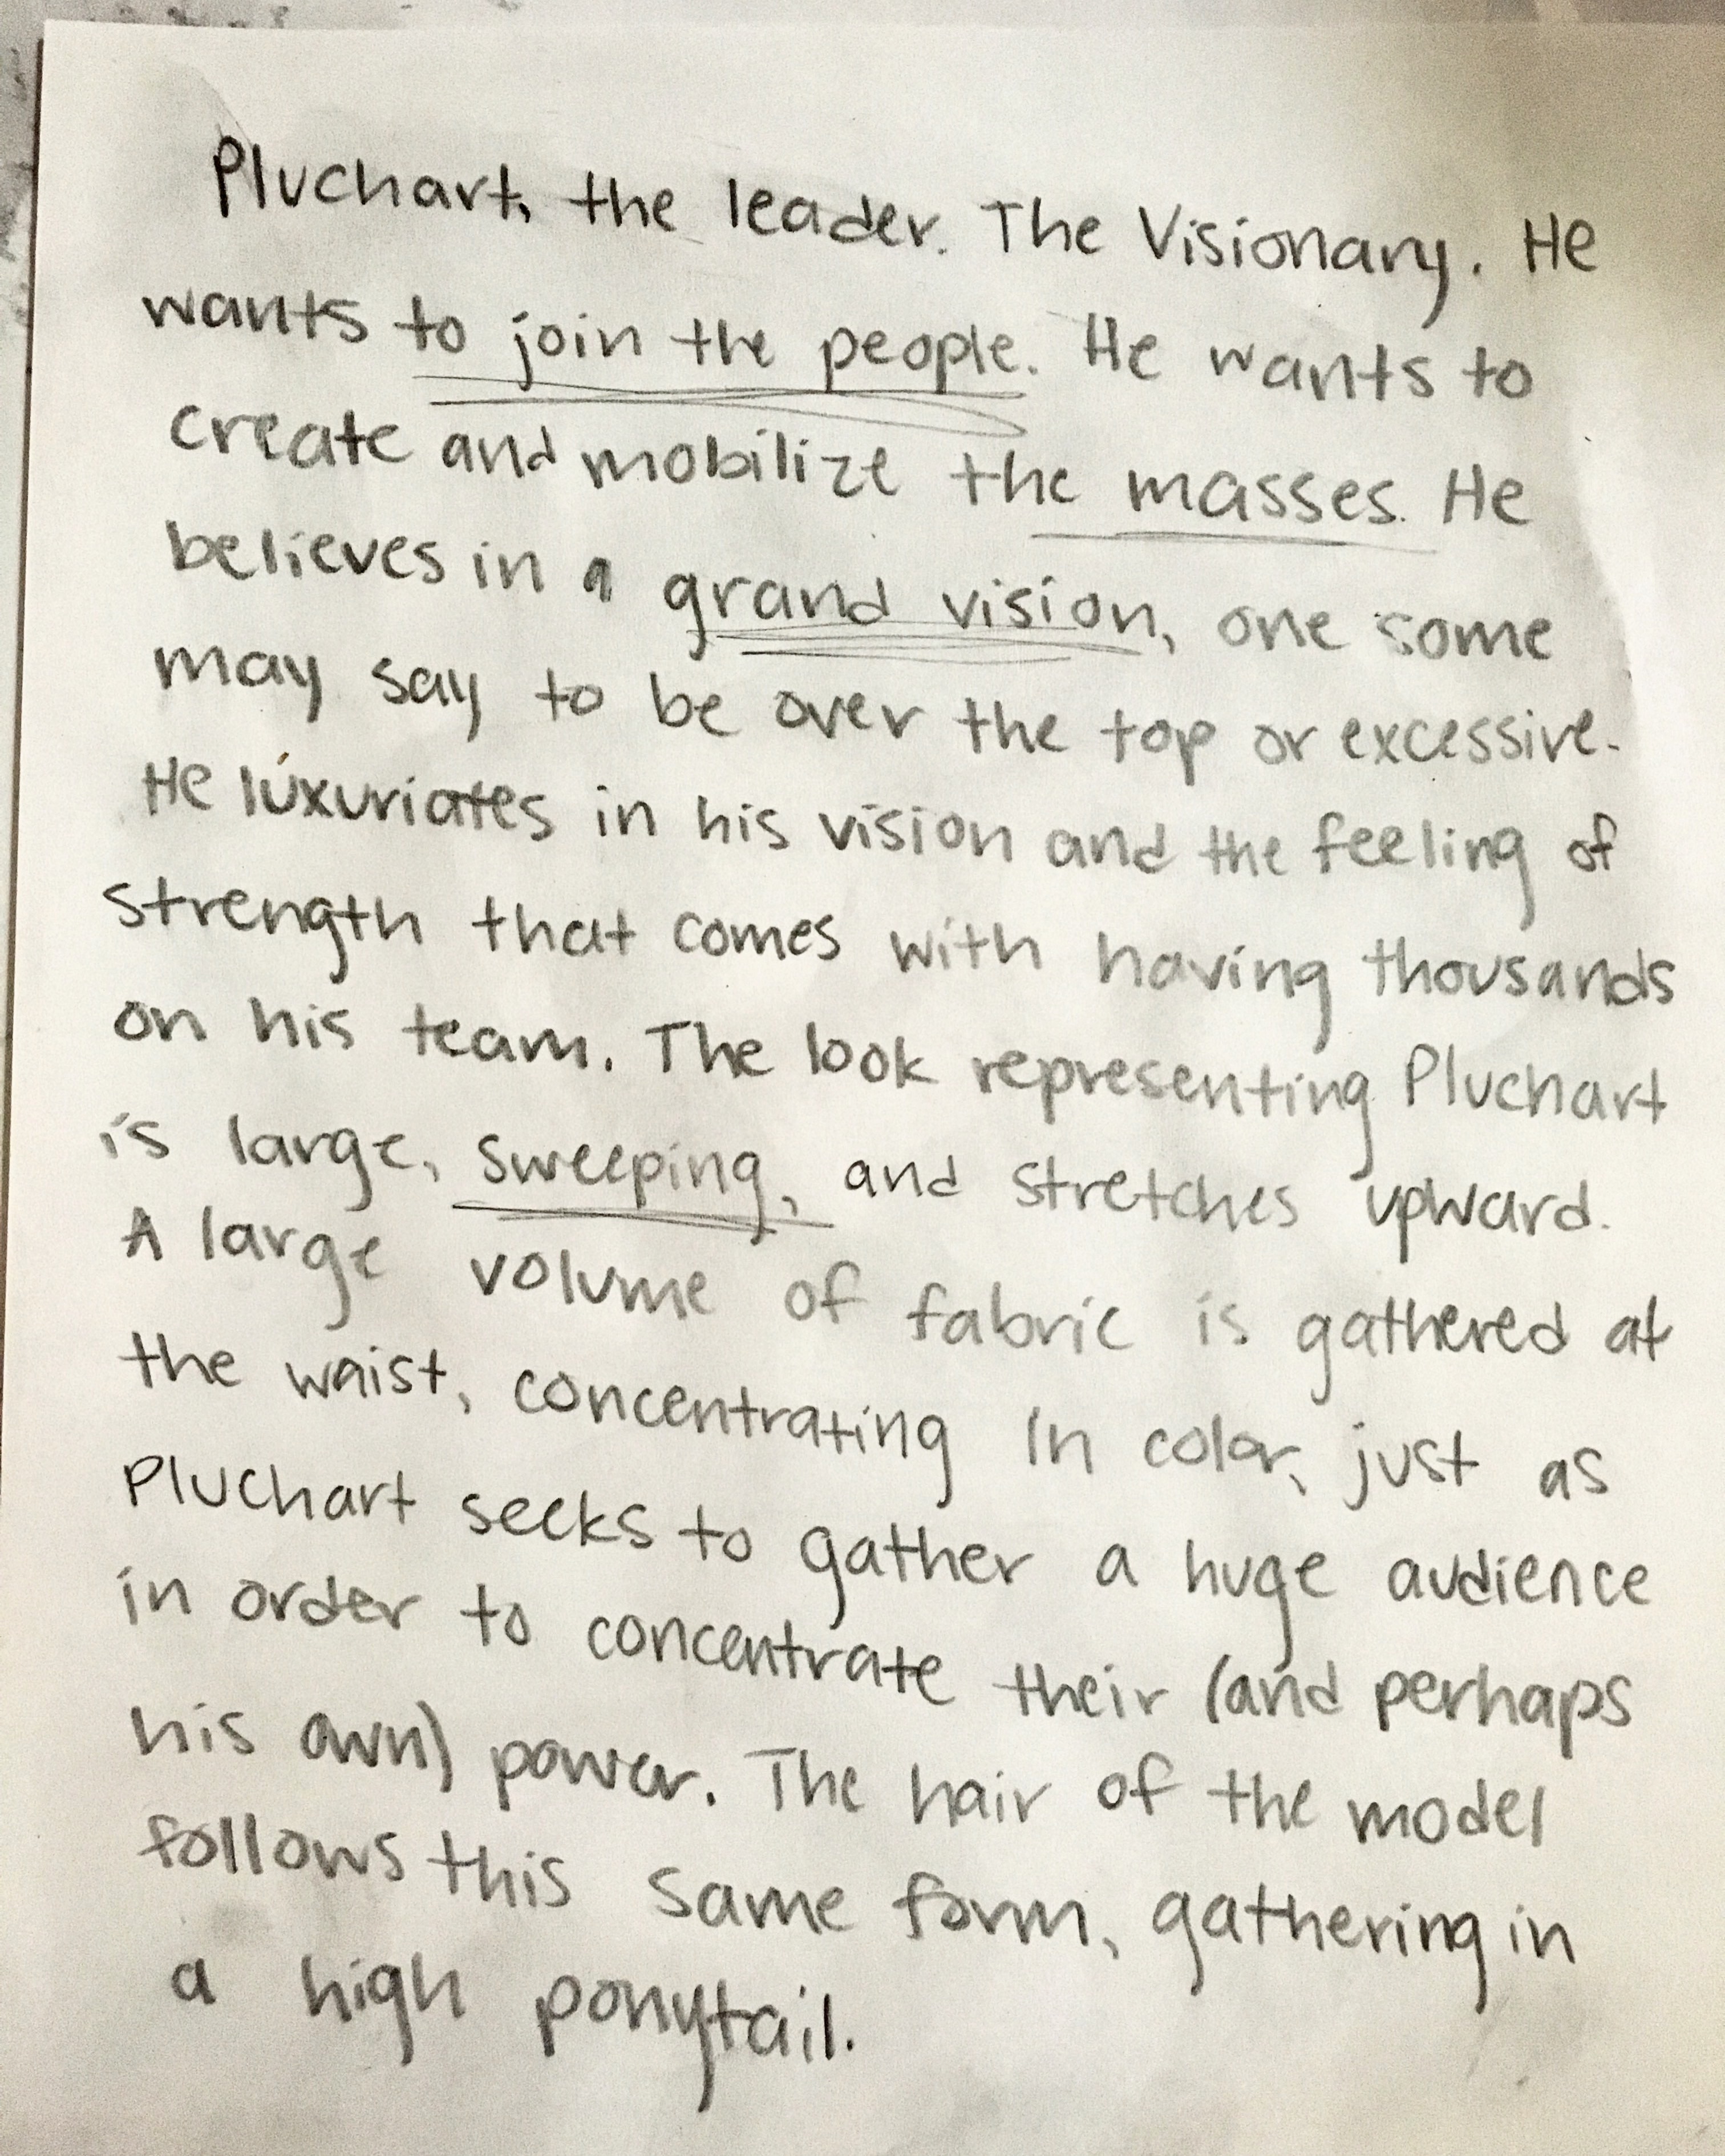 Pluchart, the leader. The Visionary. He
wants to join the people. He wants to
create and mobilize the masses. He
believes in a grand vision, one some
may say to be over the top or excessive.
He luxuriates in his vision and the feeling of
strength that comes with having thousands
on his team. The look representing Pluchart
is large, sweeping, and stretches upward.
A large volume of fabric is gathered at
the waist, concentrating in color, just as
Pluchart seeks to gather a huge audience
in order to concentrate their (and perhaps
his own) power. The hair of the model
follows this same form, gathering in
a high ponytail.